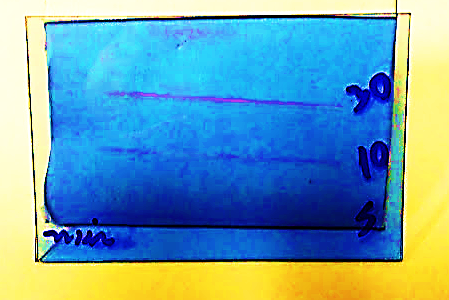 30
10
5
min